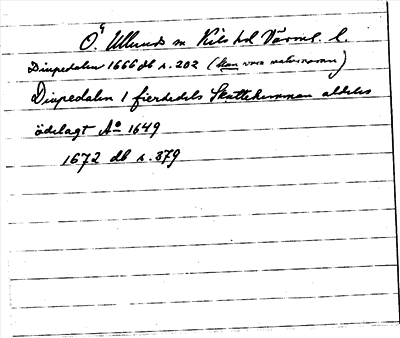 Ö. Ullerud sn Kils hd Värml. l.
Diupedalen 1666 db s. 202 (kan vara naturnamn)
Diupedaln 1 fierdedels Skattehemman aldeles
ödelagt Ao 1649
1672 db s. 879